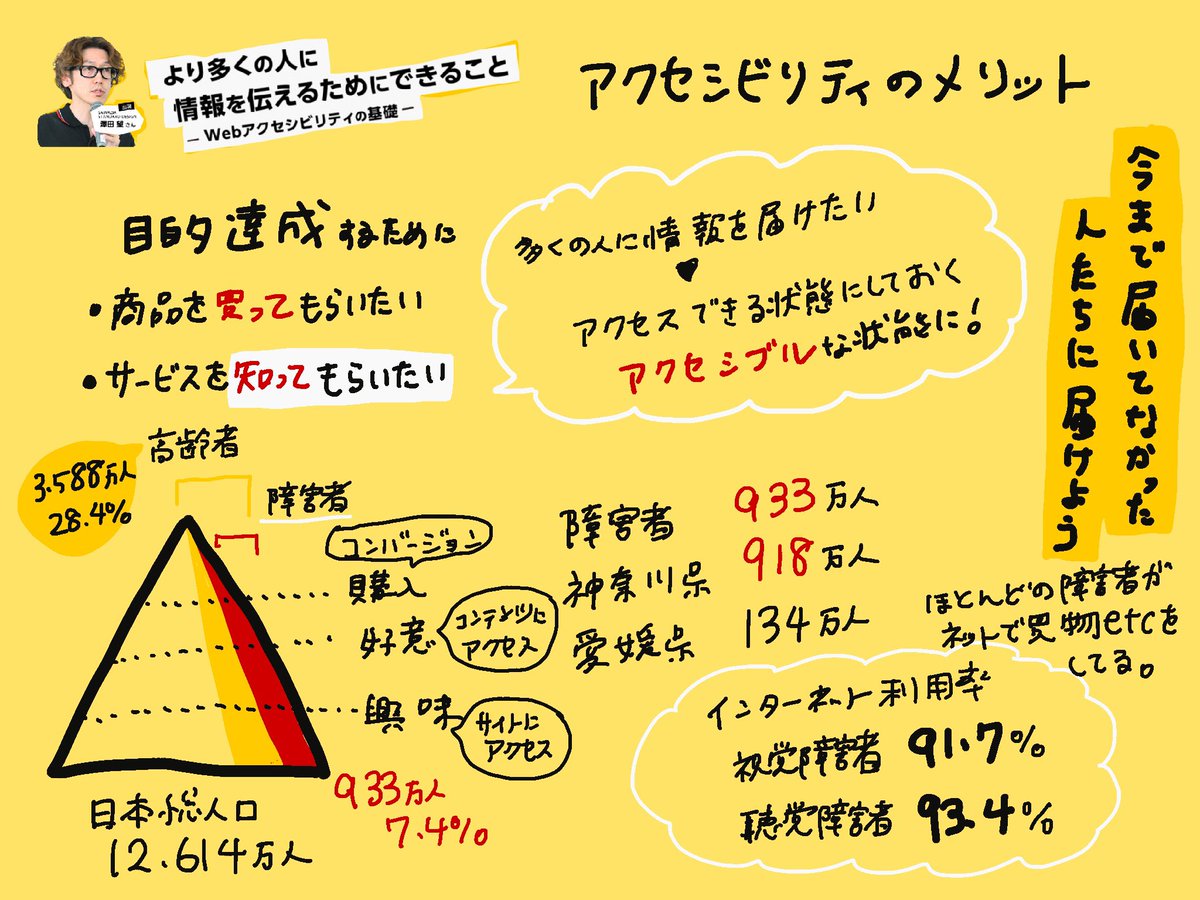 より多くの人に
情報を伝えるためにできること
― Webアクセシビリティの基礎 ―
澤田 望 さん
アクセシビリティのメリット
今まで届いてなかった
人たちに届けよう
目的達成するために
・商品を買ってもらいたい
・サービスを知ってもらいたい
多くの人に情報を届けたい
アクセスできる状態にしておく
アクセシブルな状態に!
高齢者
3.588万人
28.4%
障害者
コンバージョン
購入
好意
コンテンツに
アクセス
興味
サイトに
アクセス
933万人
7.4%
日本総人口
12.614万人
障害者 933万人
神奈川県 918万人
愛媛県 134万人
ほとんどの障害者が
ネットで買物etcを
してる。
インターネット利用率
視覚障害者 91.7%
聴覚障害者 93.4%